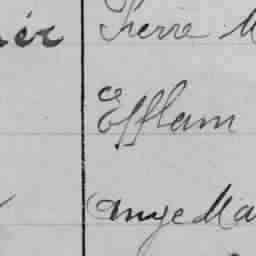 Pierre M
Efflam
Ange Ma